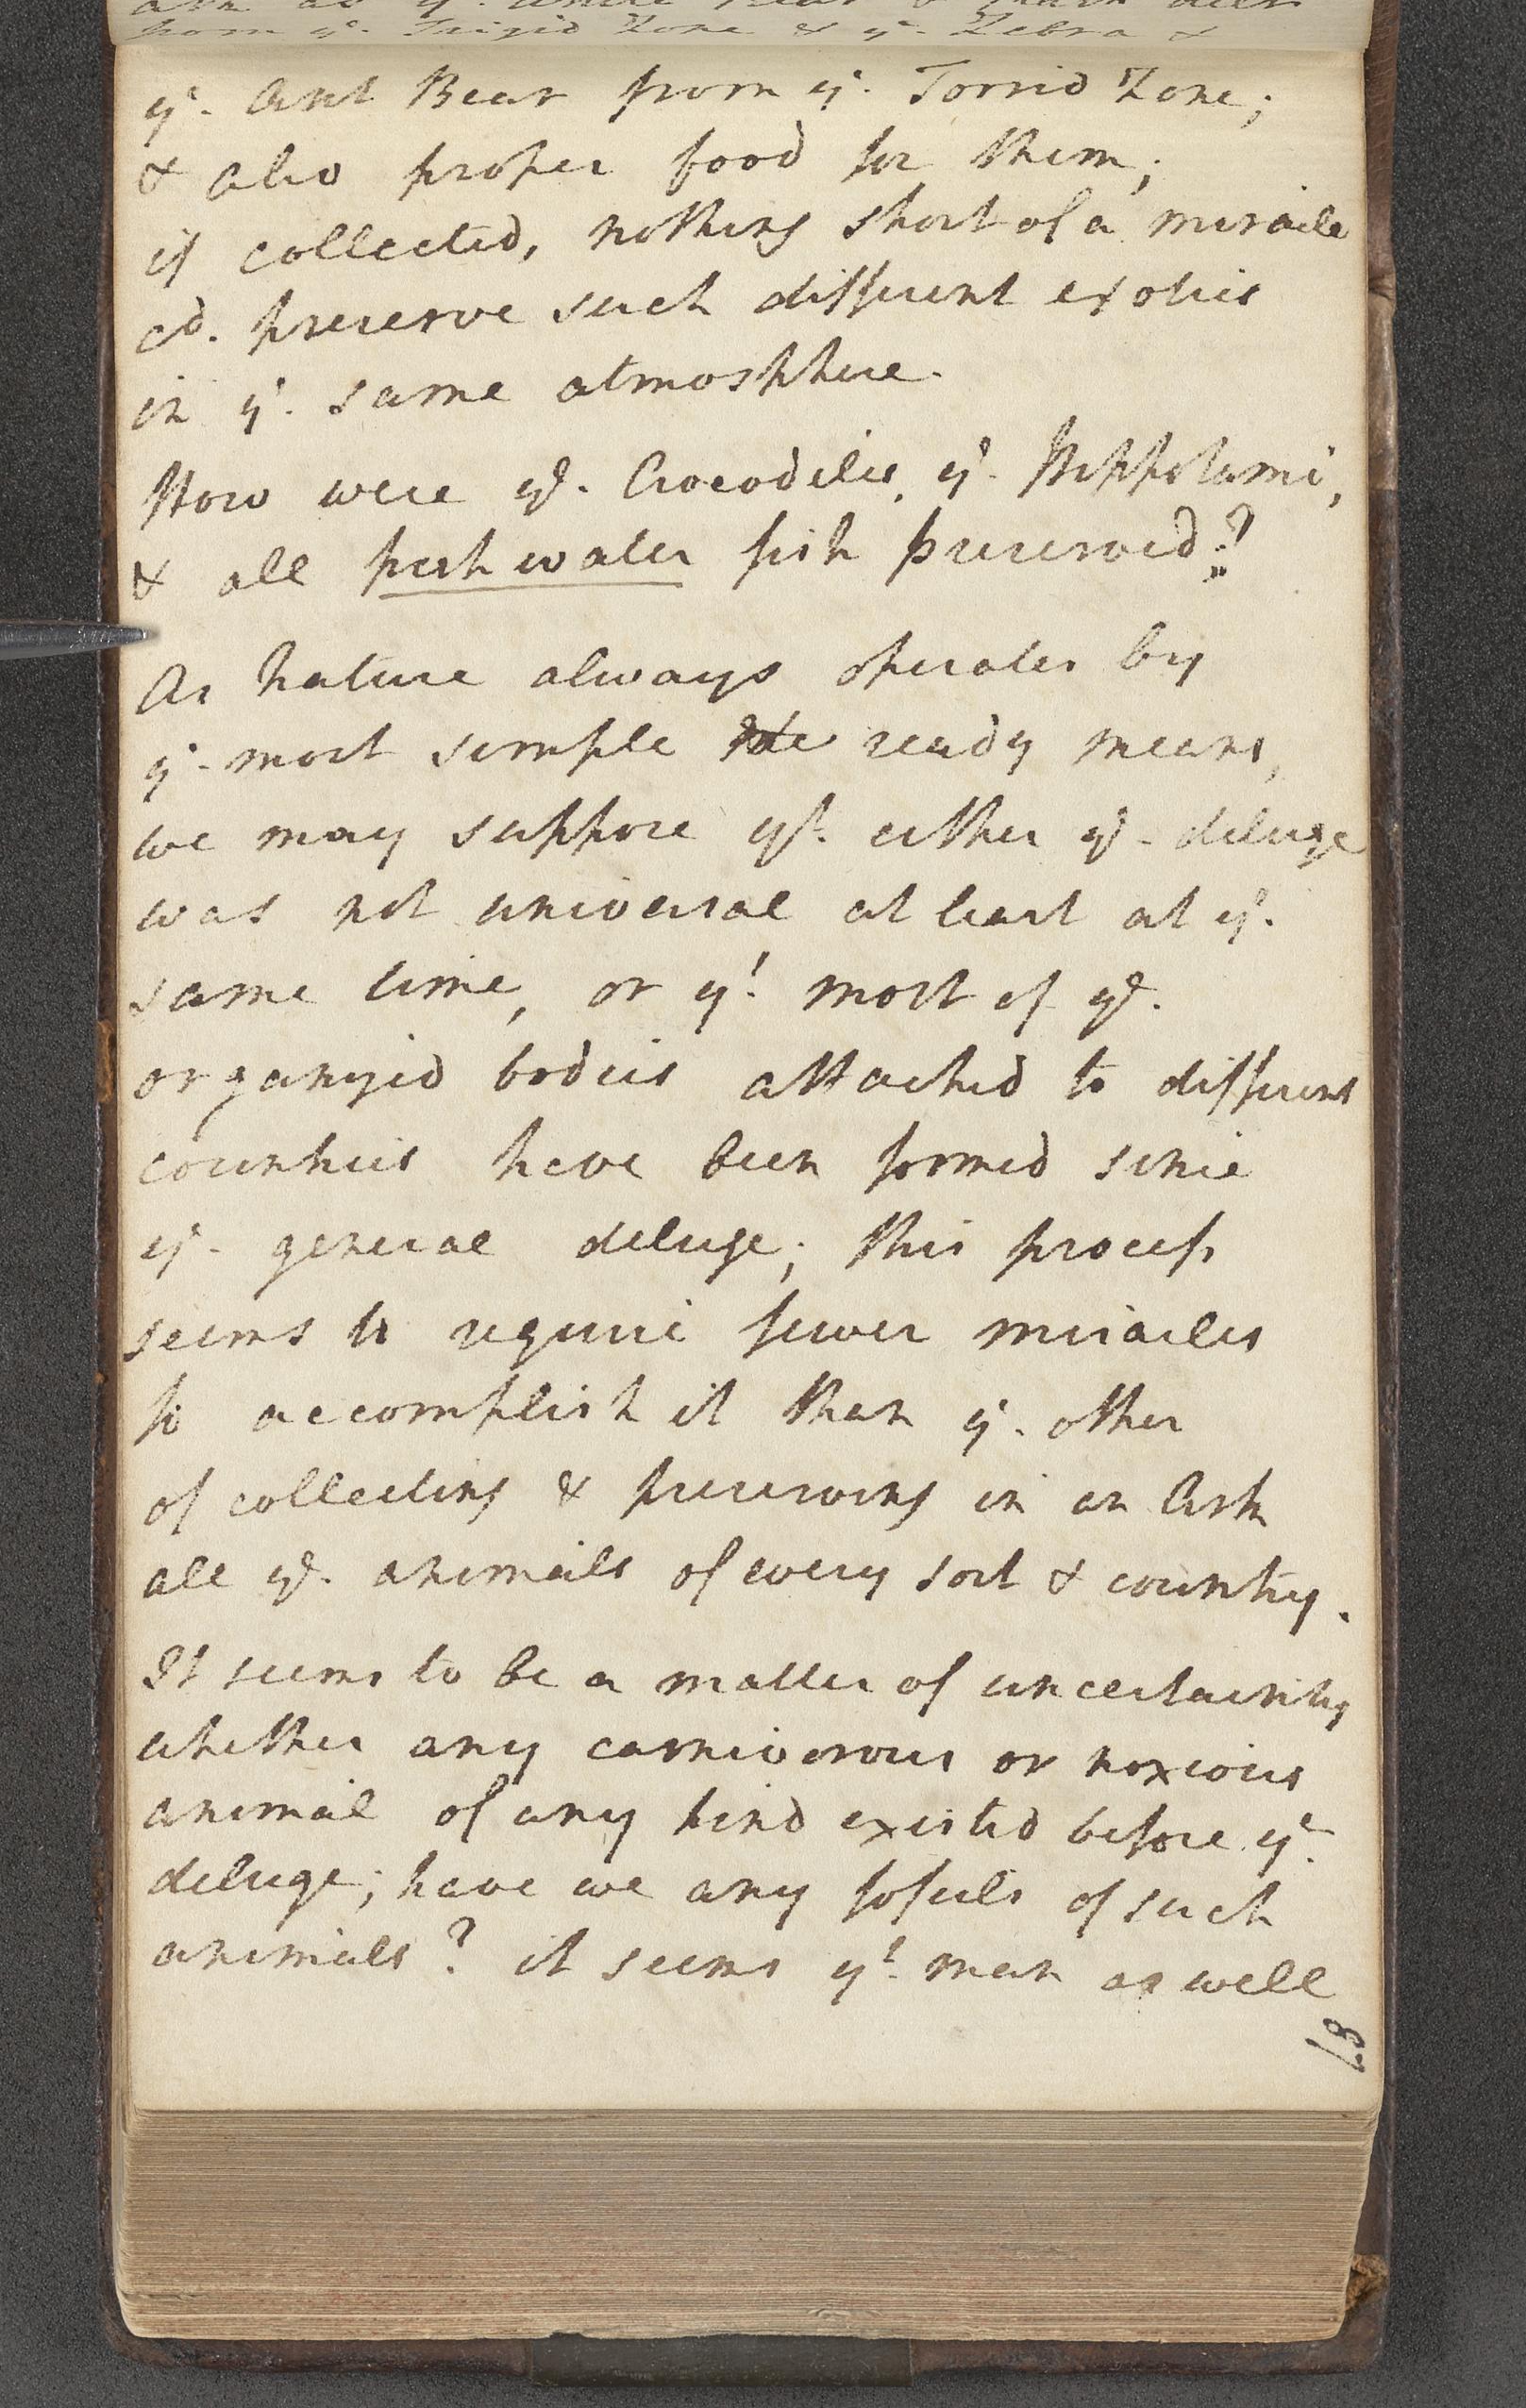 from yᵉ. Frigid Zone & yᵉ. Zebra &
yᵉ. Ant Bear from yᵉ. Torrid Zone;
& also proper food for them;
if collected, nothing short of a miracle
cᵈ. preserve such different exotics
in yᵉ. same atmosphere.
How were yᵉ. Crocodiles, yᵉ. Hippotami,
& all fresh water fish preserved?
As Nature always operates by
yᵉ. most simple & ready means,
we may suppose yᵗ. either yᵉ. deluge
was not universal at least at yᵉ.
same time, or yᵗ. most of yᵉ.
organized bodies attached to different
countries have been formed since
yᵉ. general deluge; this process
seems to require fewer miracles
to accomplish it than yᵉ. other
of collecting & preserving in an Ark
all yᵉ. animals of every sort & country.
It seems to be a matter of uncertainty
whether any carniverous or noxious
animal of any kind existed before yᵉ.
deluge; have we any fossils of such
animals? it seems yᵗ. man as well
87